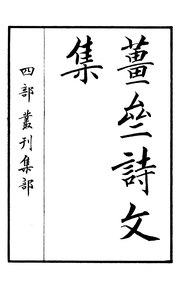 薑亝詩文
集
四部叢刊集部